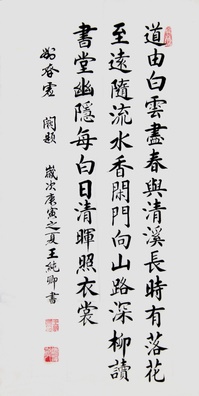 道由白雲盡春與清溪長時有落花
至遠隨流水香閑門向山路深柳讀
書堂幽隱每白日清暉照衣裳
劉昚虛 闕題 歲次庚寅之夏王純卿書